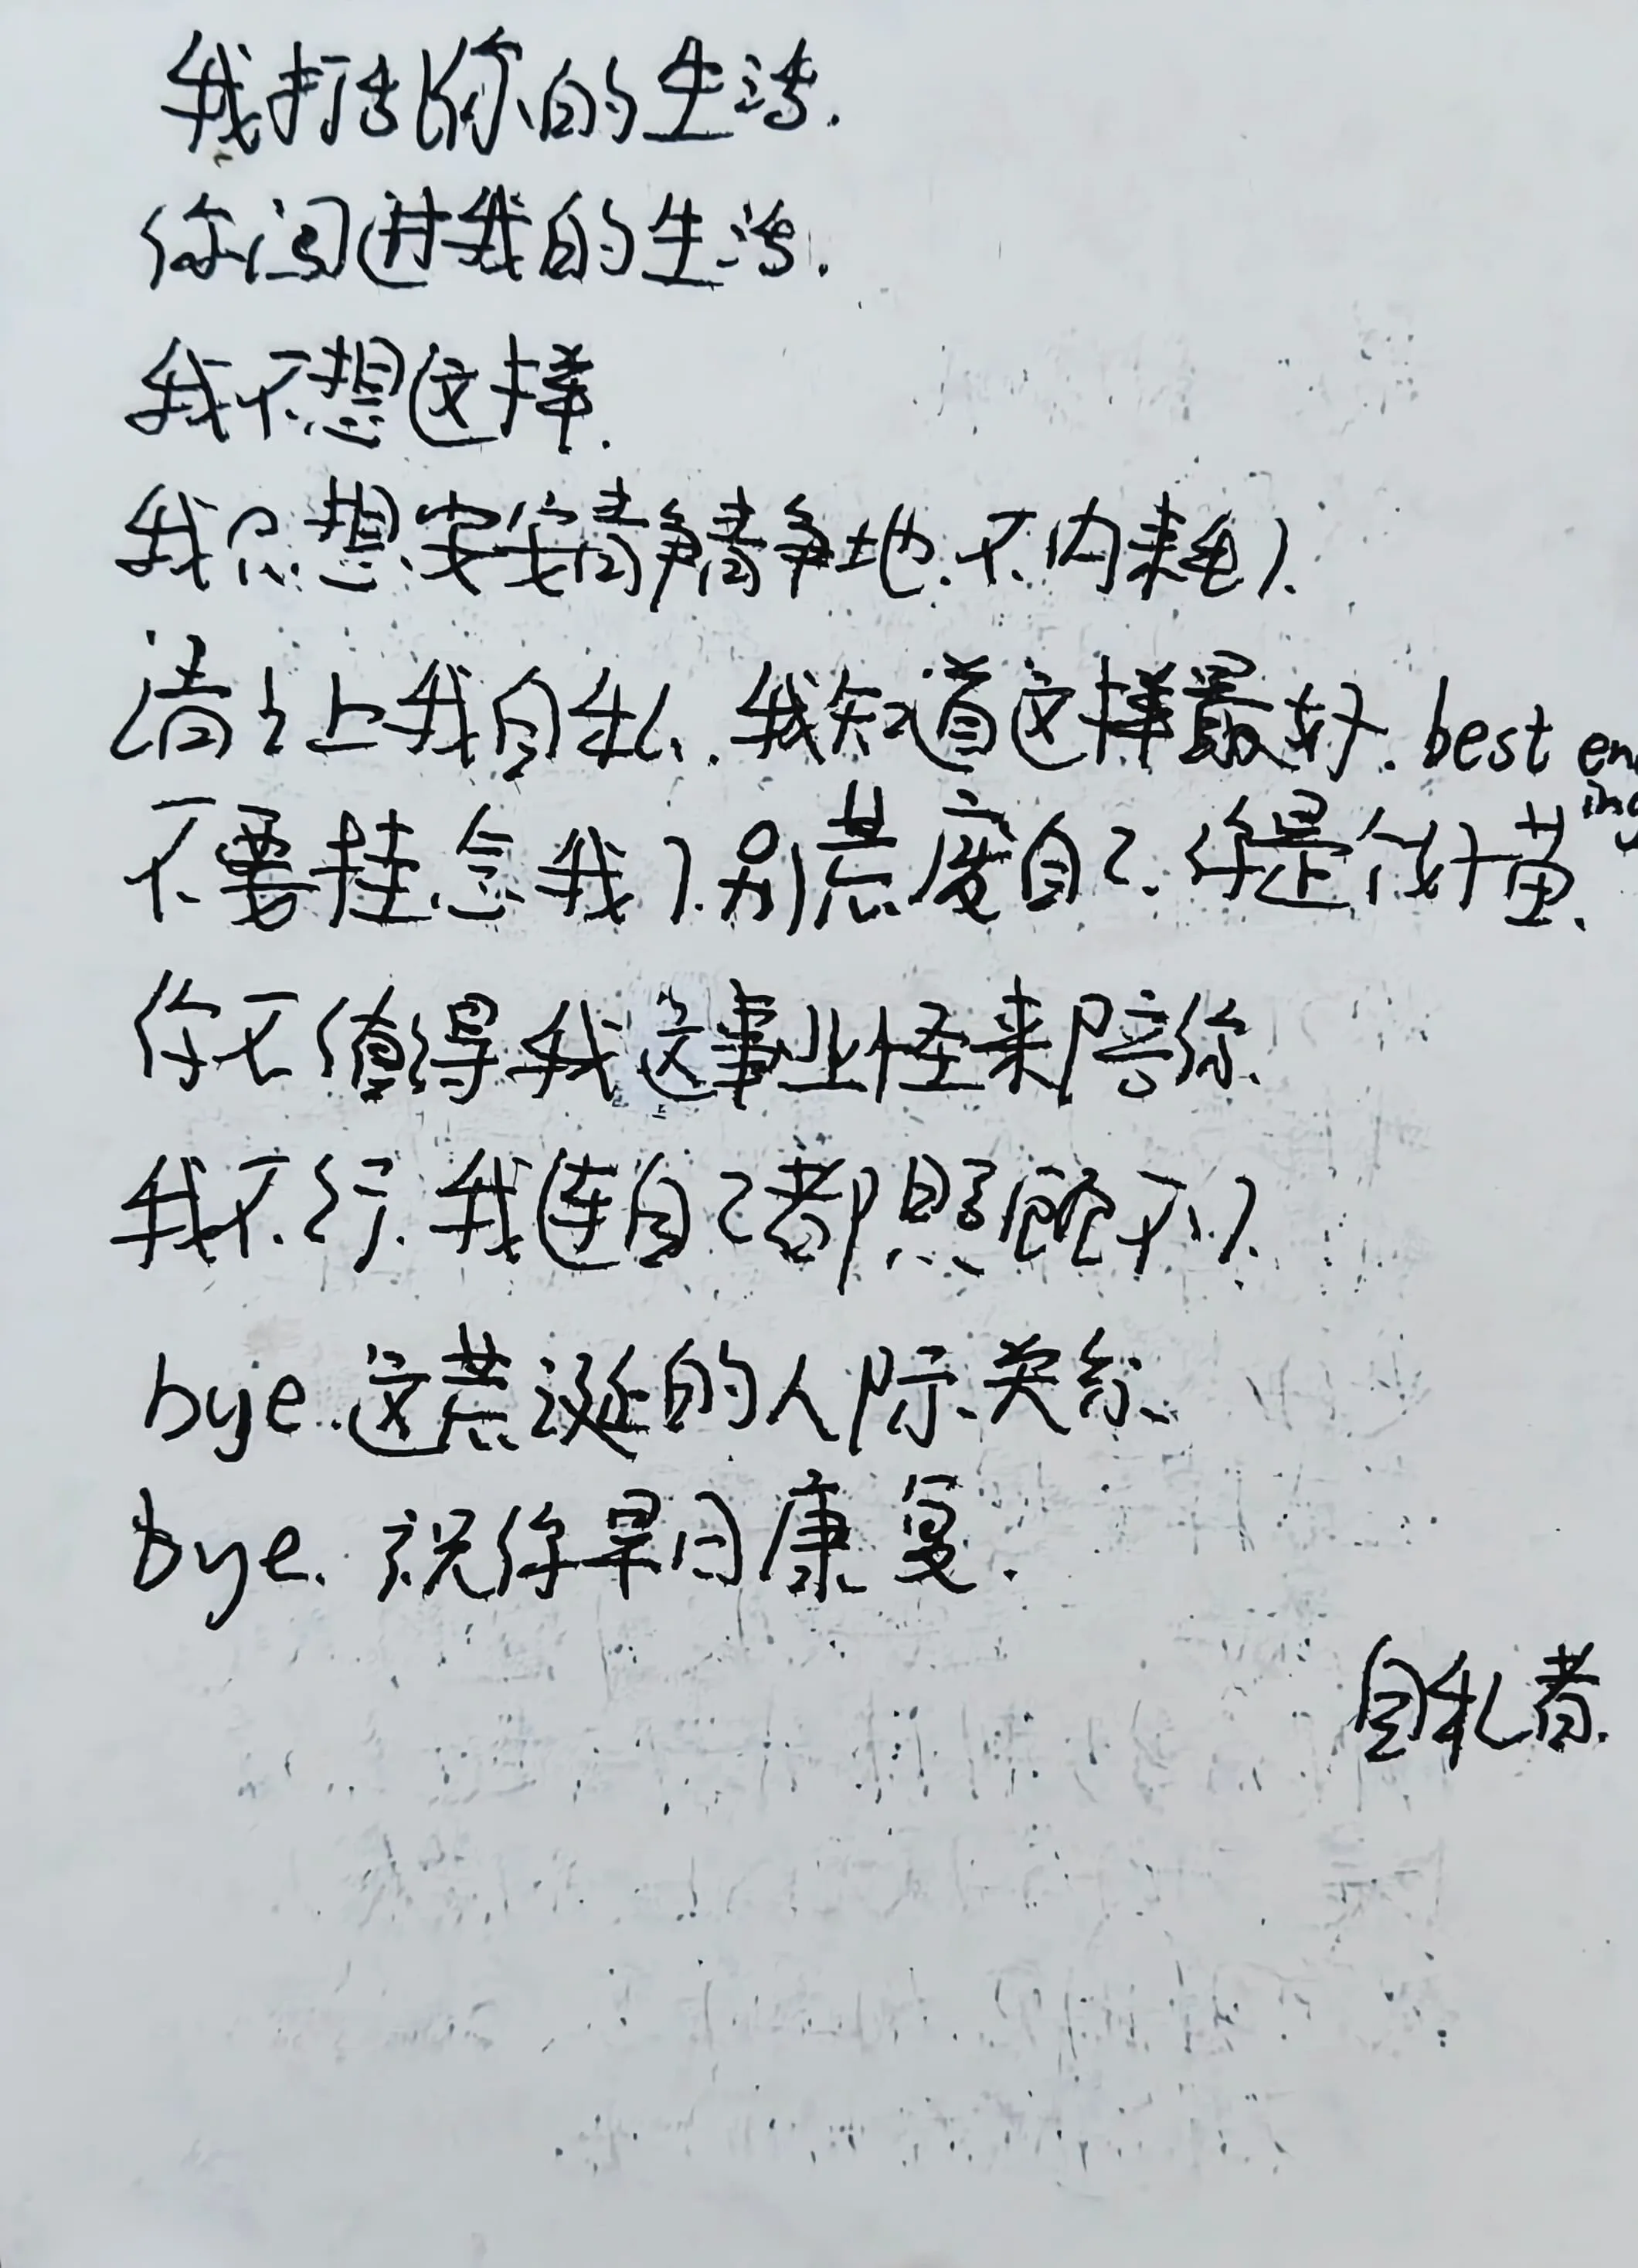 我打告你的生活.
你闯进我的生活.
我不想这样.
我只想安安静静地.不内耗了.
请让我自私.我知道这样最好.best ending
不要挂念我了.别荒废自己.你是很好
你不值得我这事业怪来陪你.
我不行.我连自己都照顾不了.
bye.这荒诞的人际关系.
bye.祝你早日康复.
自私者.